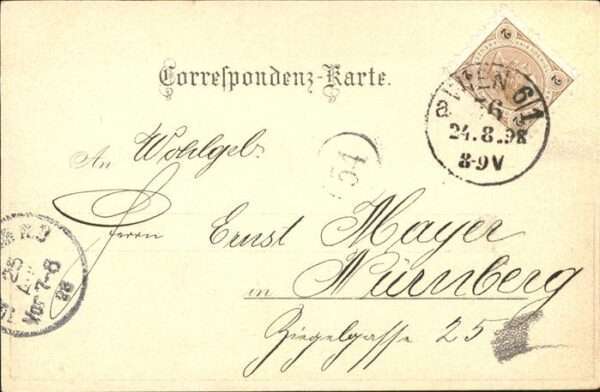 Correspondenz-Karte.
WIEN 6/1
a 76
24.8.98
8-9V
An Wohlgeb.
54
Herrn Ernst Mayer
in Nürnberg
Ziegelgasse 25
25
Vor 7-8
98
2
2
2